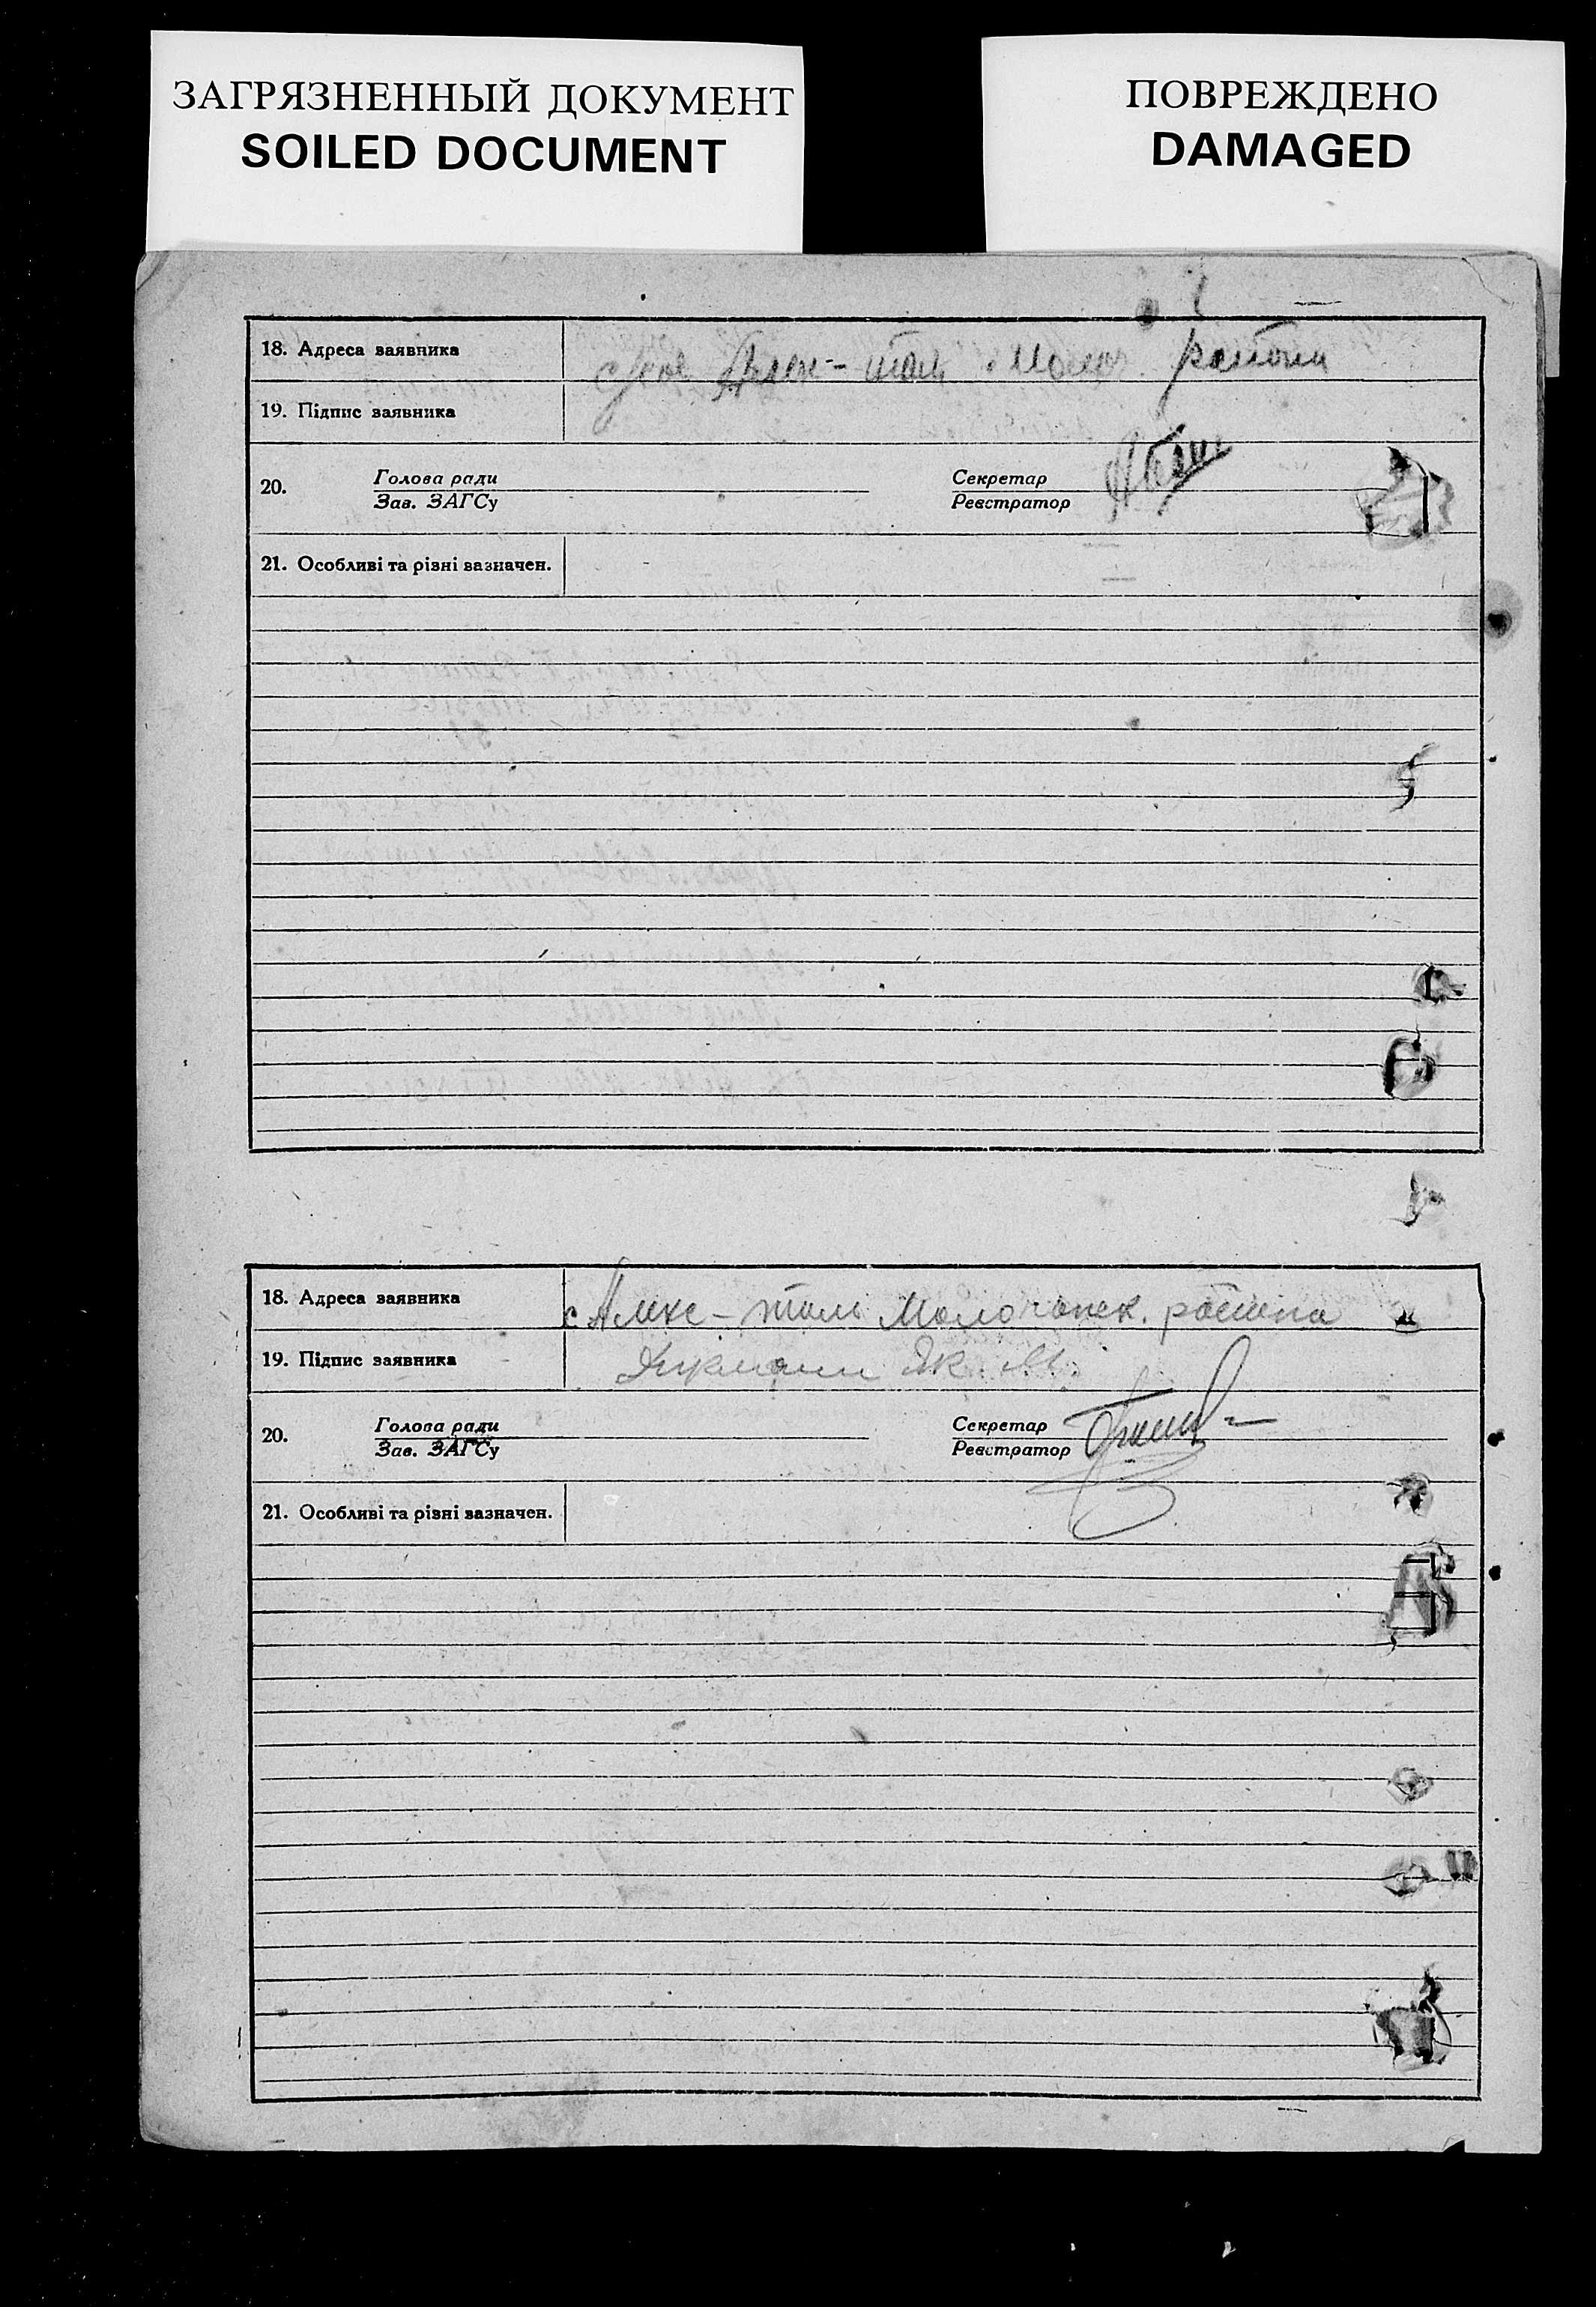 ЗАГРЯЗНЕННЫЙ ДОКУМЕНТ
SOILED DOCUMENT
ПОВРЕЖДЕНО
DAMAGED
18. Адреса заявника
19. Підпис заявника
20. Голова ради Секретар
Зав. ЗАГСу Реєстратор
21. Особливі та різні вазначен.
18. Адреса заявника с Алекс-таль Молочанск. района
19. Підпис заявника Дикман Як. М.
20. Голова ради Секретар
Зав. ЗАГСу Реєстратор
21. Особливі та різні вазначен.